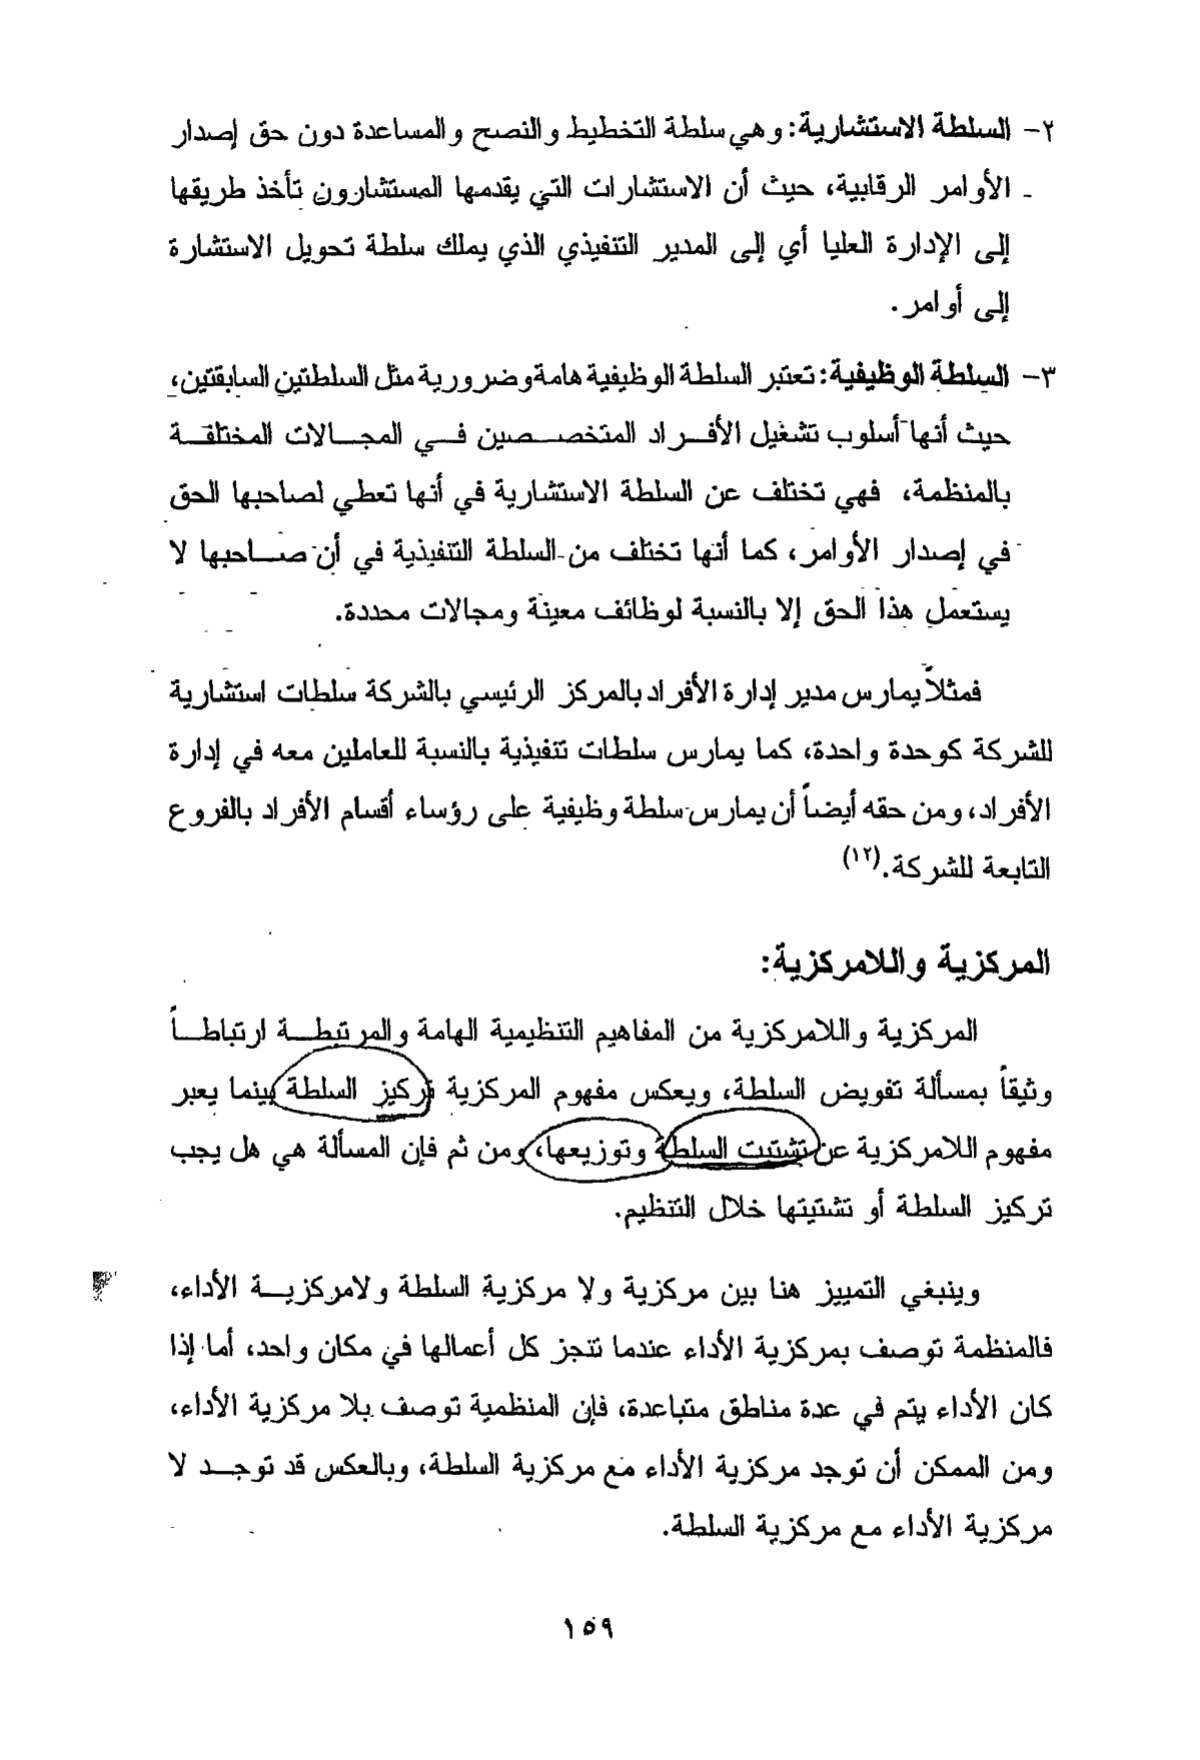 ٢- السلطة الاستشارية: وهي سلطة التخطيط والنصح والمساعدة دون حق إصدار
الأوامر الرقابية، حيث أن الاستشارات التي يقدمها المستشارون تأخذ طريقها
إلى الإدارة العليا أي إلى المدير التنفيذي الذي يملك سلطة تحويل الاستشارة
إلى أوامر.
٣- السلطة الوظيفية: تعتبر السلطة الوظيفية هامة وضرورية مثل السلطتين السابقتين،
حيث أنها أسلوب تشغيل الأفراد المتخصصين في المجالات المختلفة
بالمنظمة، فهي تختلف عن السلطة الاستشارية في أنها تعطي لصاحبها الحق
في إصدار الأوامر، كما أنها تختلف من السلطة التنفيذية في أن صاحبها لا
يستعمل هذا الحق إلا بالنسبة لوظائف معينة ومجالات محددة.
فمثلاً يمارس مدير إدارة الأفراد بالمركز الرئيسي بالشركة سلطات استشارية
للشركة كوحدة واحدة، كما يمارس سلطات تنفيذية بالنسبة للعاملين معه في إدارة
الأفراد، ومن حقه أيضاً أن يمارس سلطة وظيفية على رؤساء أقسام الأفراد بالفروع
التابعة للشركة.(١٢)
المركزية واللامركزية:
المركزية واللامركزية من المفاهيم التنظيمية الهامة والمرتبطة ارتباطاً
وثيقاً بمسألة تفويض السلطة، ويعكس مفهوم المركزية تركيز السلطة بينما يعبر
مفهوم اللامركزية عن تشتيت السلطة وتوزيعها، ومن ثم فإن المسألة هي هل يجب
تركيز السلطة أو تشتيتها خلال التنظيم.
وينبغي التمييز هنا بين مركزية ولا مركزية السلطة ولامركزية الأداء،
فالمنظمة توصف بمركزية الأداء عندما تنجز كل أعمالها في مكان واحد، أما إذا
كان الأداء يتم في عدة مناطق متباعدة، فإن المنظمية توصف بلا مركزية الأداء،
ومن الممكن أن توجد مركزية الأداء مع مركزية السلطة، وبالعكس قد توجد لا
مركزية الأداء مع مركزية السلطة.
١٥٩